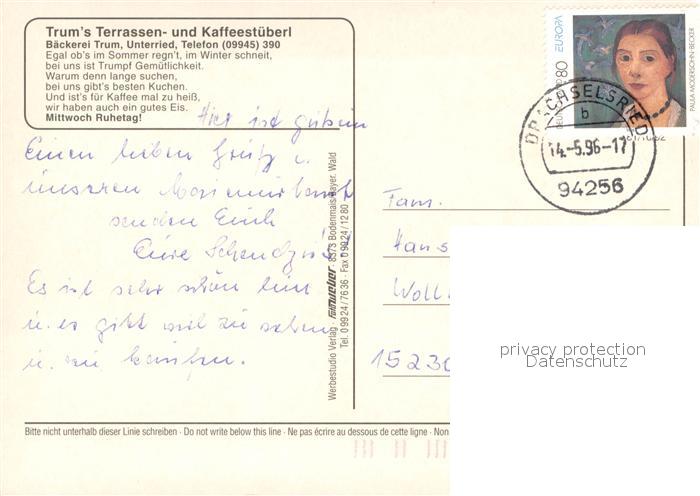 Trum's Terrassen- und Kaffeestüberl
Bäckerei Trum, Unterried, Telefon (09945) 390
Egal ob's im Sommer regn't, im Winter schneit,
bei uns ist Trumpf Gemütlichkeit.
Warum denn lange suchen,
bei uns gibt's besten Kuchen.
Und ist's für Kaffee mal zu heiß,
wir haben auch ein gutes Eis.
Mittwoch Ruhetag!
Hier ist
Einen lieben Gruß u.
unseren
senden Euch
Eure
Es ist sehr schön hier
u. es gibt viel zu sehen
u. zu kaufen.
Werbestudio Verlag weber 8373 Bodenmais/Bayer. Wald
Tel. 0 99 24 / 76 36 · Fax 0 99 24 / 12 80
EUROPA
80
PAULA MODERSOHN-BECKER
DRACHSELSRIED
b
14.-5.96-17
94256
Fam.
Hans
15230
privacy protection
Datenschutz
Bitte nicht unterhalb dieser Linie schreiben · Do not write below this line · Ne pas écrire au dessous de cette ligne · Non